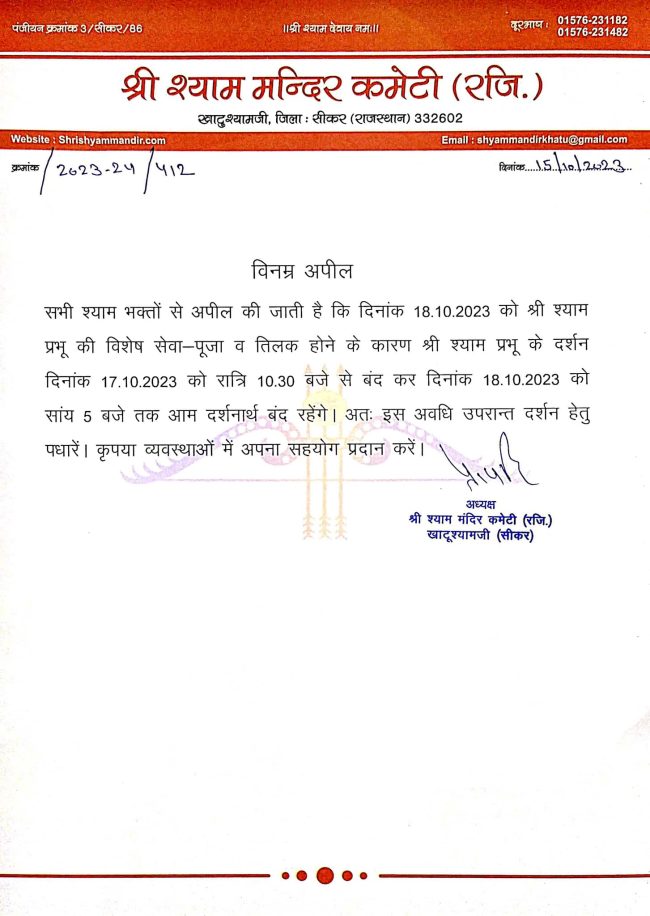 पंजीयन क्रमांक 3/सीकर/86
॥श्री श्याम देवाय नमः॥
दूरभाष : 01576-231182
01576-231482
श्री श्याम मन्दिर कमेटी (रजि.)
खाटूश्यामजी, जिला : सीकर (राजस्थान) 332602
Website : Shrishyammandir.com
Email : shyammandirkhatu@gmail.com
क्रमांक / 2023-24 / 412
दिनांक.....15/10/2023...
विनम्र अपील
सभी श्याम भक्तों से अपील की जाती है कि दिनांक 18.10.2023 को श्री श्याम
प्रभू की विशेष सेवा–पूजा व तिलक होने के कारण श्री श्याम प्रभू के दर्शन
दिनांक 17.10.2023 को रात्रि 10.30 बजे से बंद कर दिनांक 18.10.2023 को
सांय 5 बजे तक आम दर्शनार्थ बंद रहेंगे। अतः इस अवधि उपरान्त दर्शन हेतु
पधारें। कृपया व्यवस्थाओं में अपना सहयोग प्रदान करें।
अध्यक्ष
श्री श्याम मंदिर कमेटी (रजि.)
खाटूश्यामजी (सीकर)